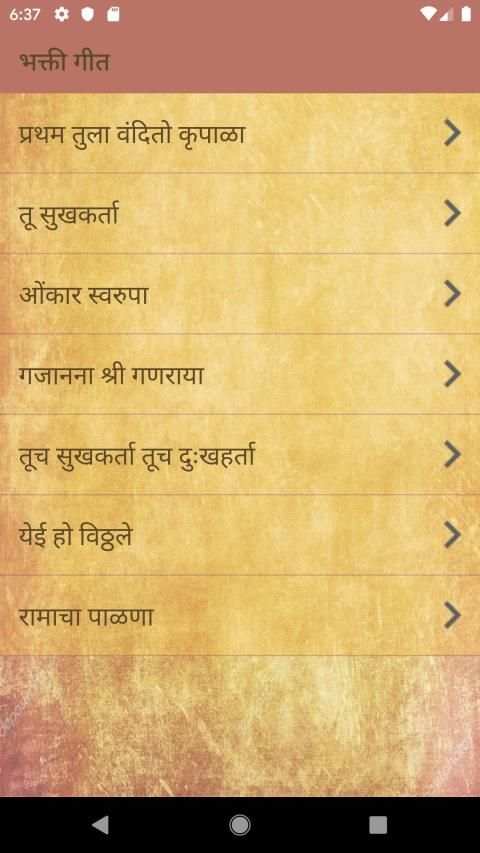 6:37
भक्ती गीत
प्रथम तुला वंदितो कृपाळा
तू सुखकर्ता
ओंकार स्वरुपा
गजानना श्री गणराया
तूच सुखकर्ता तूच दुःखहर्ता
येई हो विठ्ठले
रामाचा पाळणा